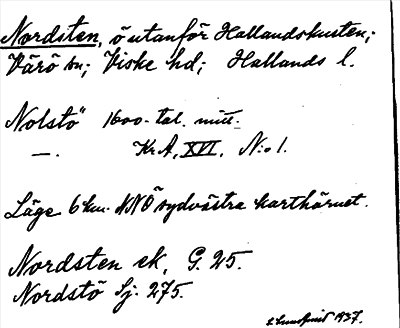 Nordsten, ö utanför Hallandskusten;
Värö sn; Viske hd; Hallands l.
"Nolstö" 1600-tal. mitt.
—. Kr.A, XVI, N:o 1.
Läge 6 km. NNÖ sydvästra karthörnet.
Nordsten ek, G. 25.
Nordstö Sj. 275.
1937.